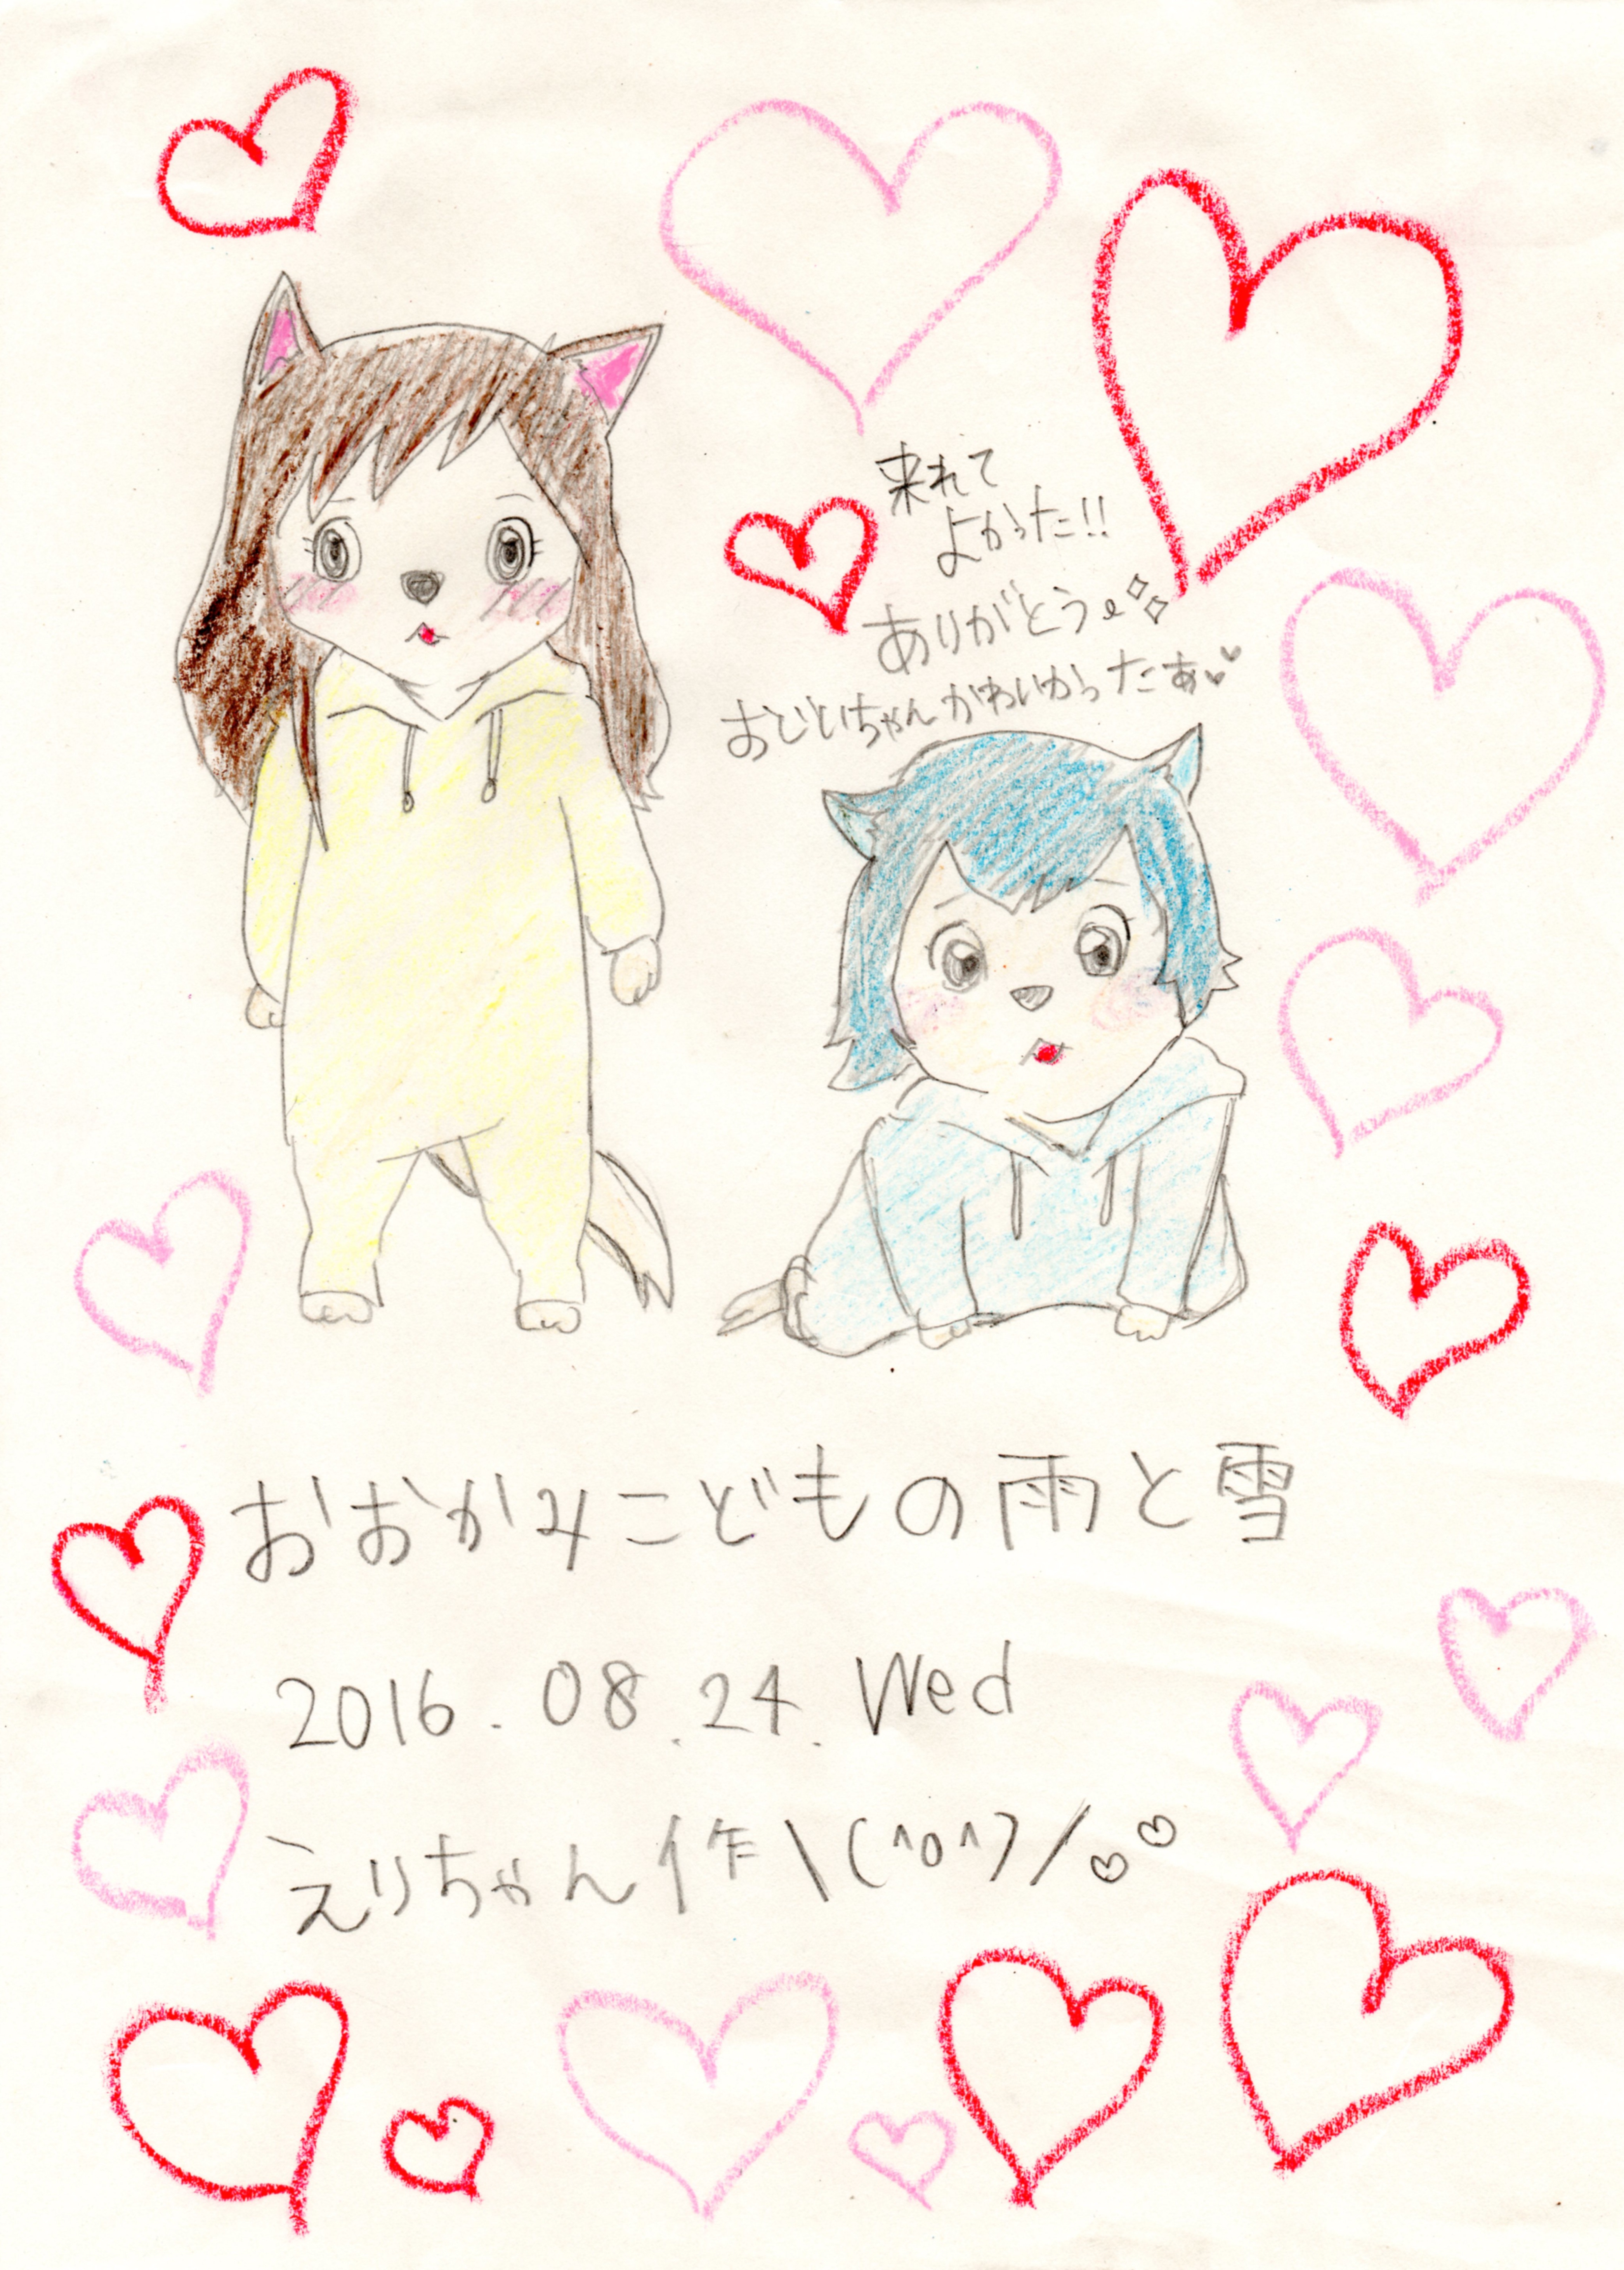 来れて
よかった!!
ありがとう
おじいちゃんかわいかったぁ
おおかみこどもの雨と雪
2016.08.24.Wed
えりちゃん作\(^o^)/